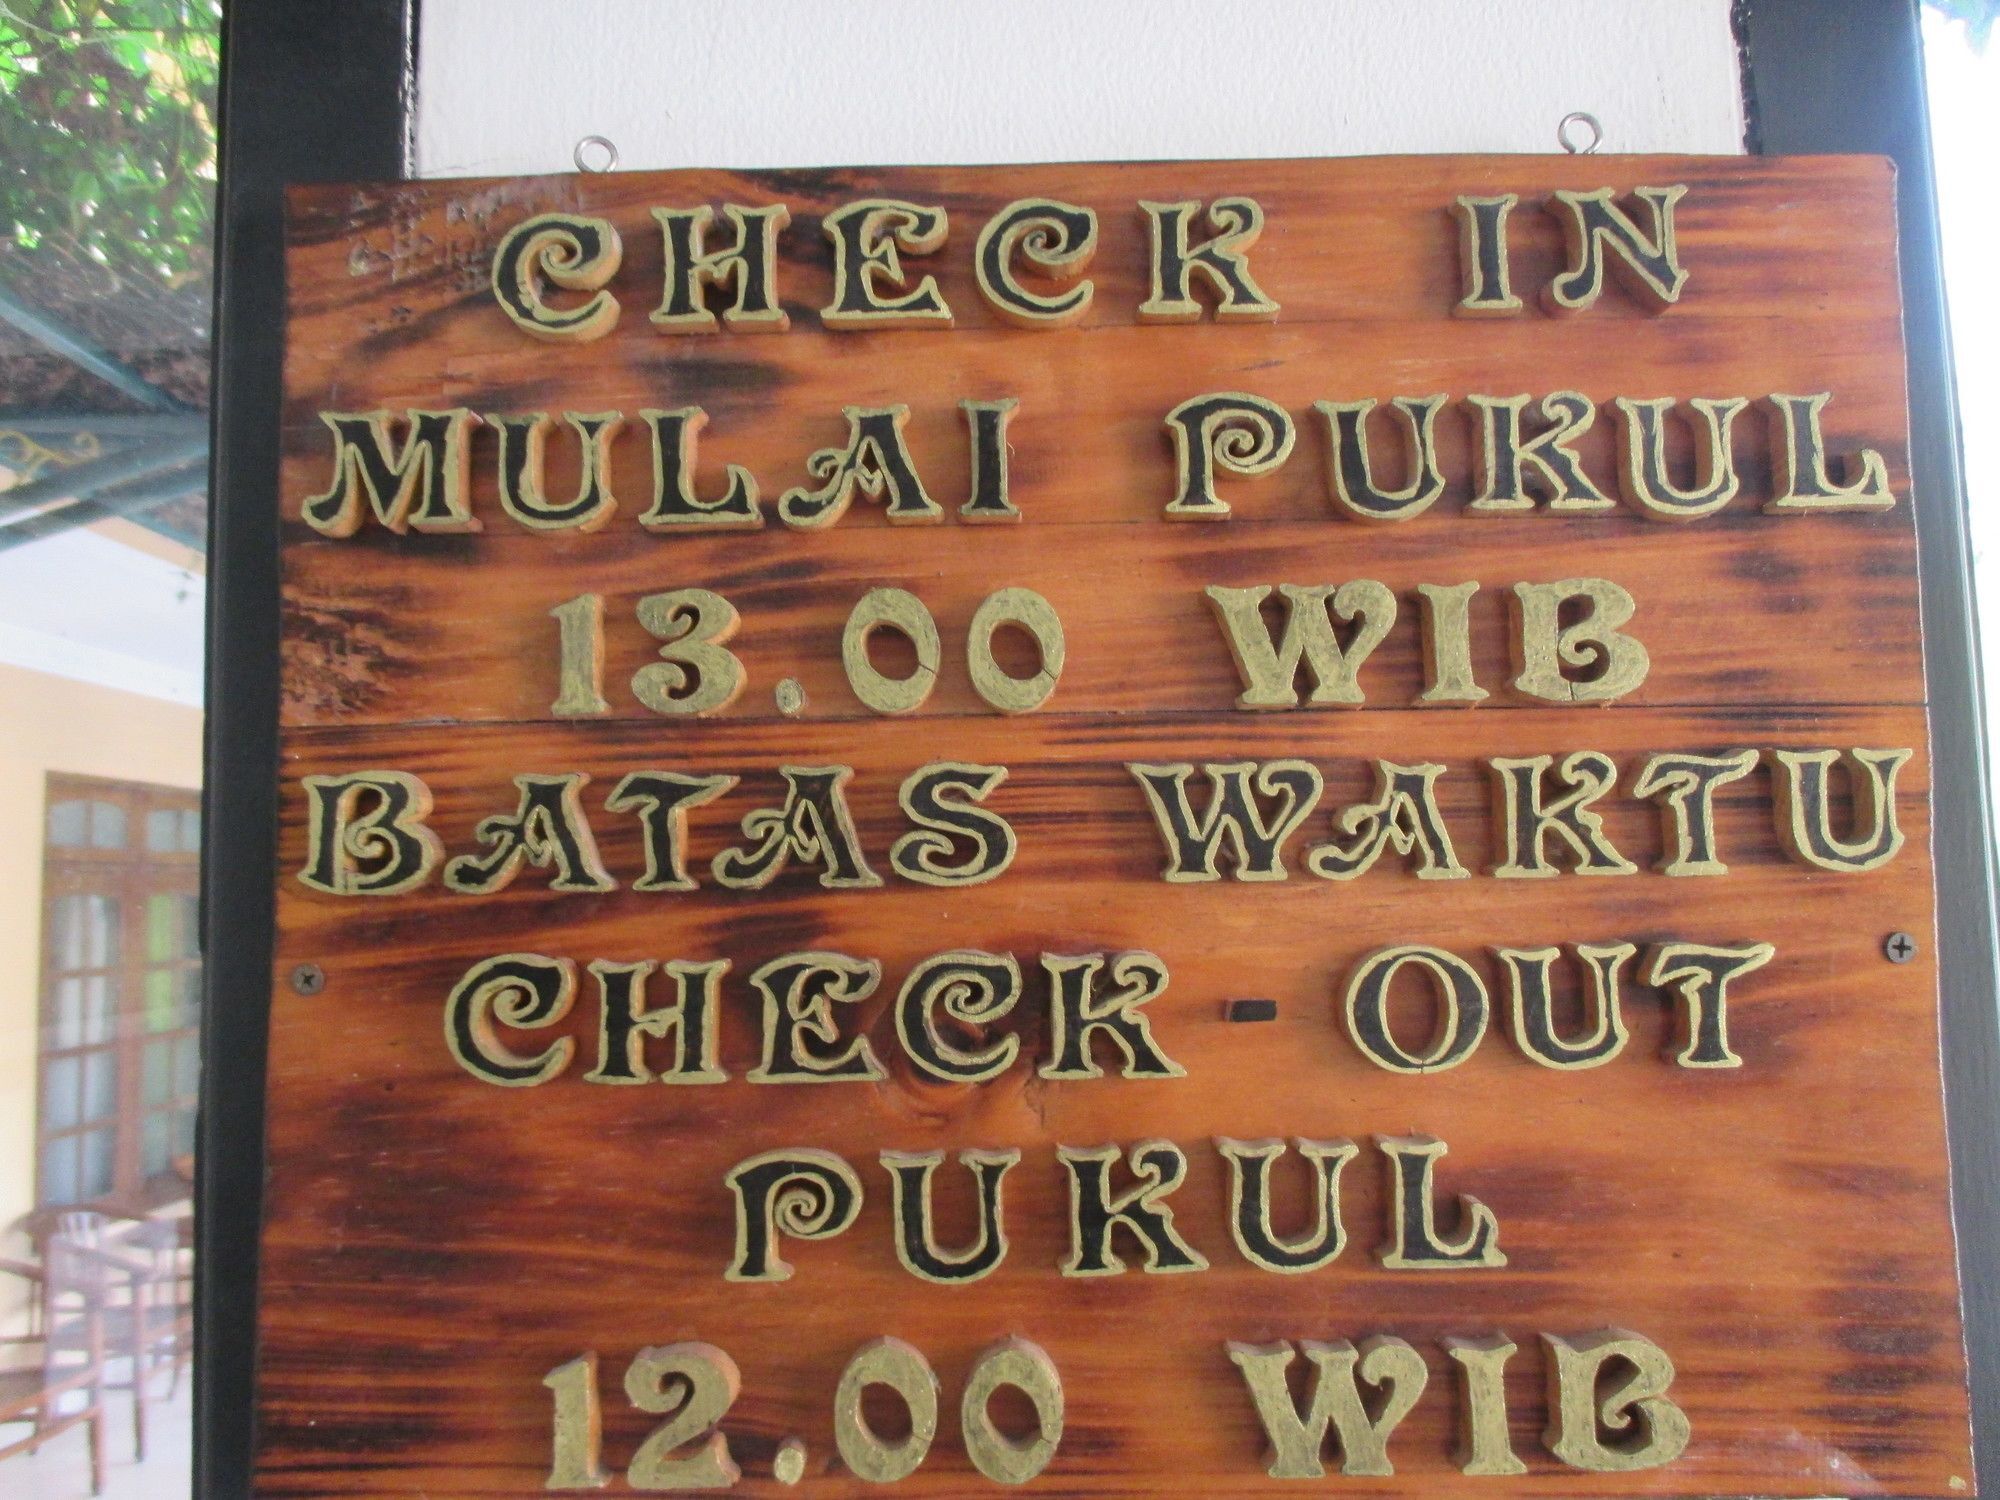 CHECK IN
MULAI PUKUL
13.00 WIB
BATAS WAKTU
CHECK - OUT
PUKUL
12.00 WIB